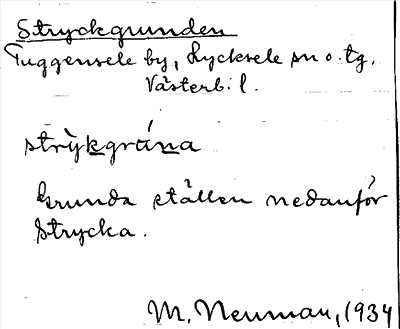 Stryckgrunden
Tuggensele by, Lycksele sn o. tg.
Västerb. l.
strỳkgrána
Grunda ställen nedanför
Strycka.
M. Neuman, 1934